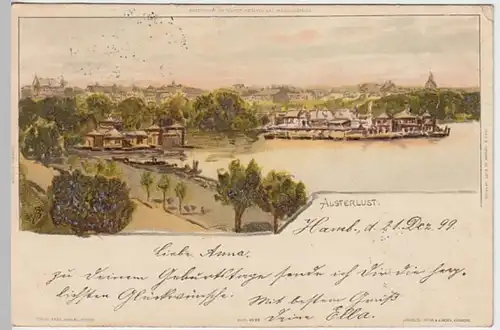 ALSTERLUST.
Hamb., d. 21. Dez. 99.
Liebe Anna,
zu Deinem Geburtstage sende ich Dir die herz-
lichsten Glückwünsche. Mit bestem Gruß
Deine Ella.